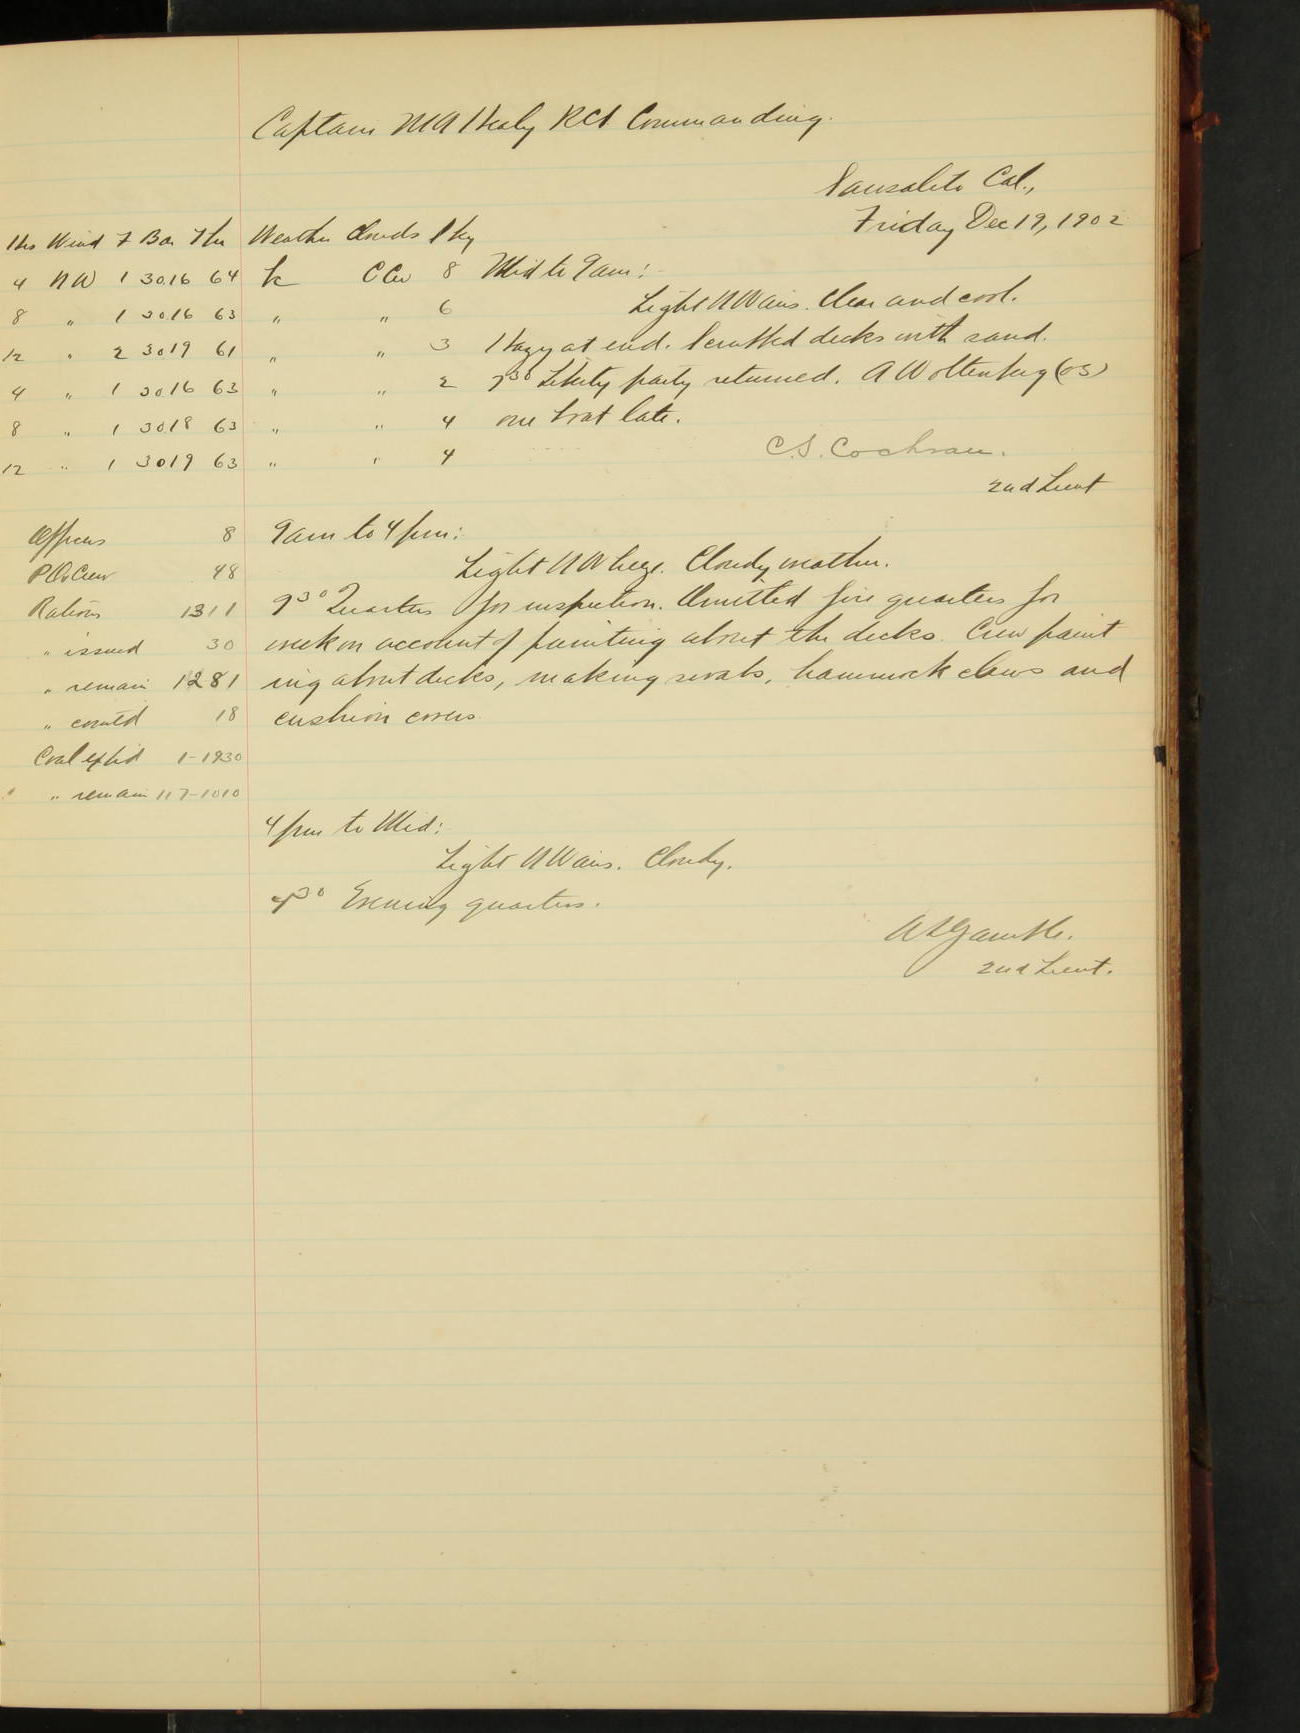 Captain M A Healy RCS Commanding.
Sausalito Cal.,
Friday Dec 19, 1902
Hrs Wind F Bar Ther Weather Clouds Sky
4 NW 1 3016 64 bc CCu 8 Mid to 9am:
8 " 1 3016 63 " " 6 Light NW airs. Clear and cool.
12 " 2 3019 61 " " 3 Hazy at end. Scrubbed decks with sand.
4 " 1 3016 63 " " 2 7³⁰ Liberty party returned. A Woltenberg (OS)
8 " 1 3018 63 " " 4 one boat late.
12 " 1 3019 63 " " 4 C.S. Cochran.
2nd Lieut
Officers 8 9am to 4pm:
P.O. & Crew 48 Light NW breeze. Cloudy weather.
Rations 1311 9³⁰ Quarters for inspection. Omitted fire quarters for
" issued 30 week on account of painting about the decks. Crew paint
" remain 1281 ing about decks, making swabs, hammock clews and
" comtd 18 cushion covers.
Coal exp'd 1-1230
" remain 117-1010
4pm to Mid:
Light NW airs. Cloudy.
4³⁰ Evening quarters.
Gamble.
2nd Lieut.